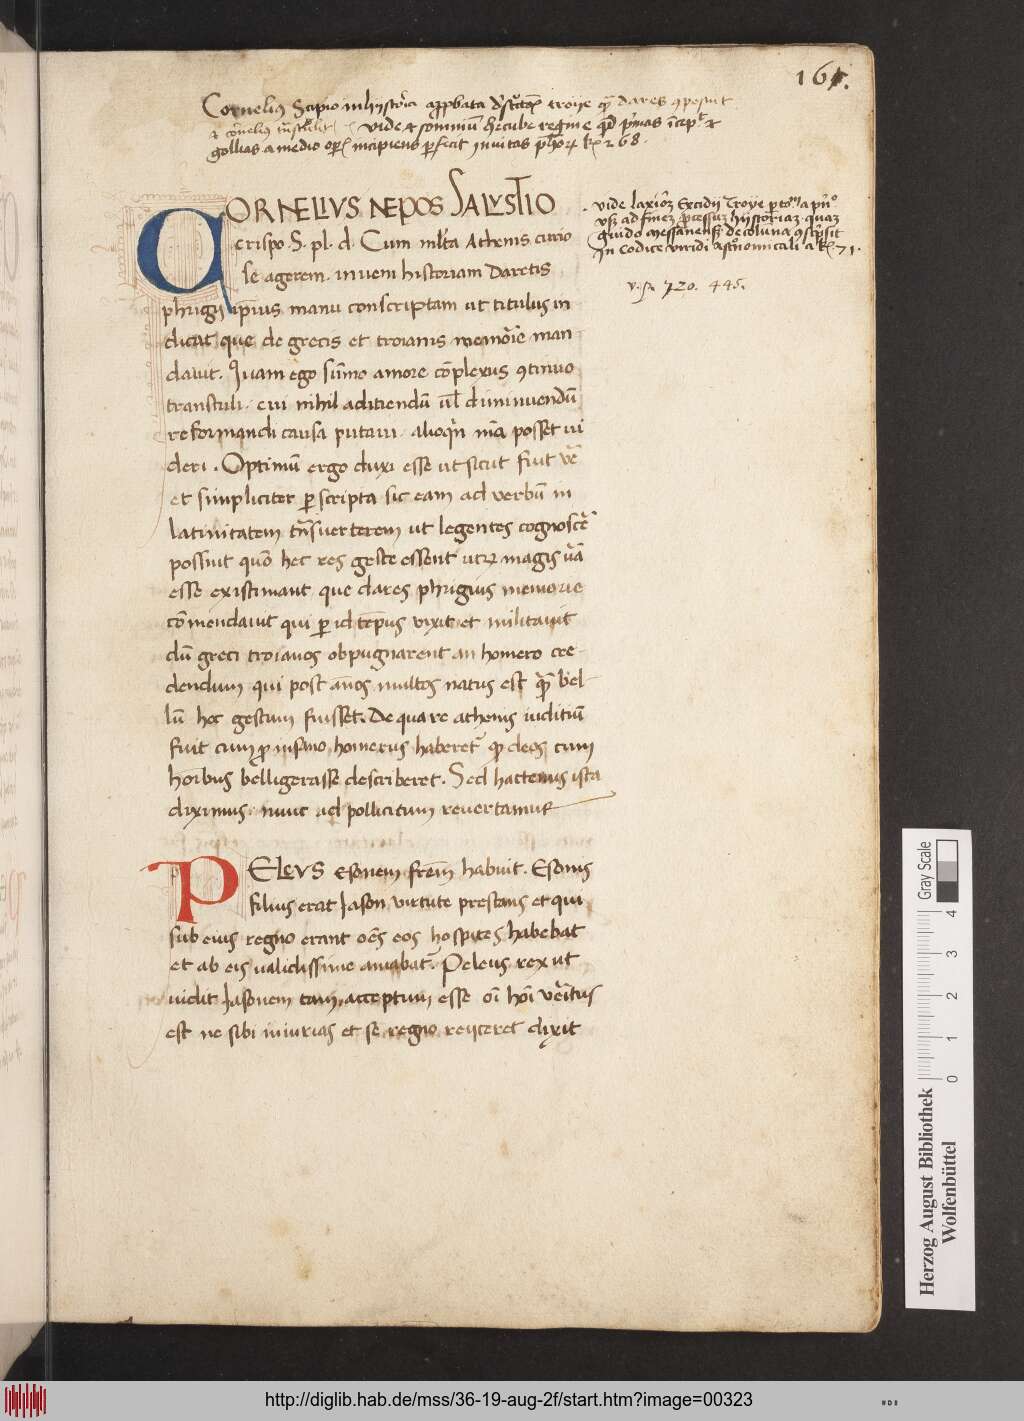 161.
Cornelius Scipio in hystoria approbata destructionem troije quam dares composuit
et cornelius transtulit vide et somnium hecube regine quod primas incepit et
gollias a medio operis incipiens perfecit in uitas
CORNELIVS NEPOS SALVSTIO
crispo .S. pl. d. Cum multa Athenis curio
se agerem. inueni historiam Daretis
phrigij ipsius manu conscriptam ut titulus in
dicat que de grecis et troianis memorie man
dauit. Quam ego summo amore complexus continuo
transtuli. cui nihil aditiendum uel diminuendum
reformandi causa putaui. alioquin mea posset ui
deri. Optimum ergo duxi esse ut sicut fuit vere
et simpliciter perscripta sic eam ad verbum in
latinitatem transuerterem ut legentes cognoscere
possint quomodo hec res geste essent utrum magis uera
esse existimant que dares phrigius memorie
commendauit qui per id tempus vixit et militauit
dum greci troianos obpugnarent an homero cre-
dendum qui post annos multos natus est quam bel-
lum hoc gestum fuisset. De qua re athenis iuditium
fuit cum pro insano homerus haberetur quod deos cum
hominibus belligerasse describeret. Sed hactenus ista
diximus. nunc ad pollicitum reuertamur
vide laxiorem Excidij Troye
vsque ad finem processum hystoriam quam
guido messanensis de coluna conscripsit
in codice viridi astronomicali a
v. s. 720. 445.
PELEVS Esonem fratrem habuit. Esonis
filius erat Jason virtute prestans et qui
sub eius regno erant omnes eos hospites habebat
et ab eis ualidissime amabatur. Peleus rex ut
uidit Jasonem tam acceptum esse omni homini veritus
est ne sibi iniurias et se regno reijceret dixit
Gray Scale
0 1 2 3 4
Herzog August Bibliothek
Wolfenbüttel
http://diglib.hab.de/mss/36-19-aug-2f/start.htm?image=00323